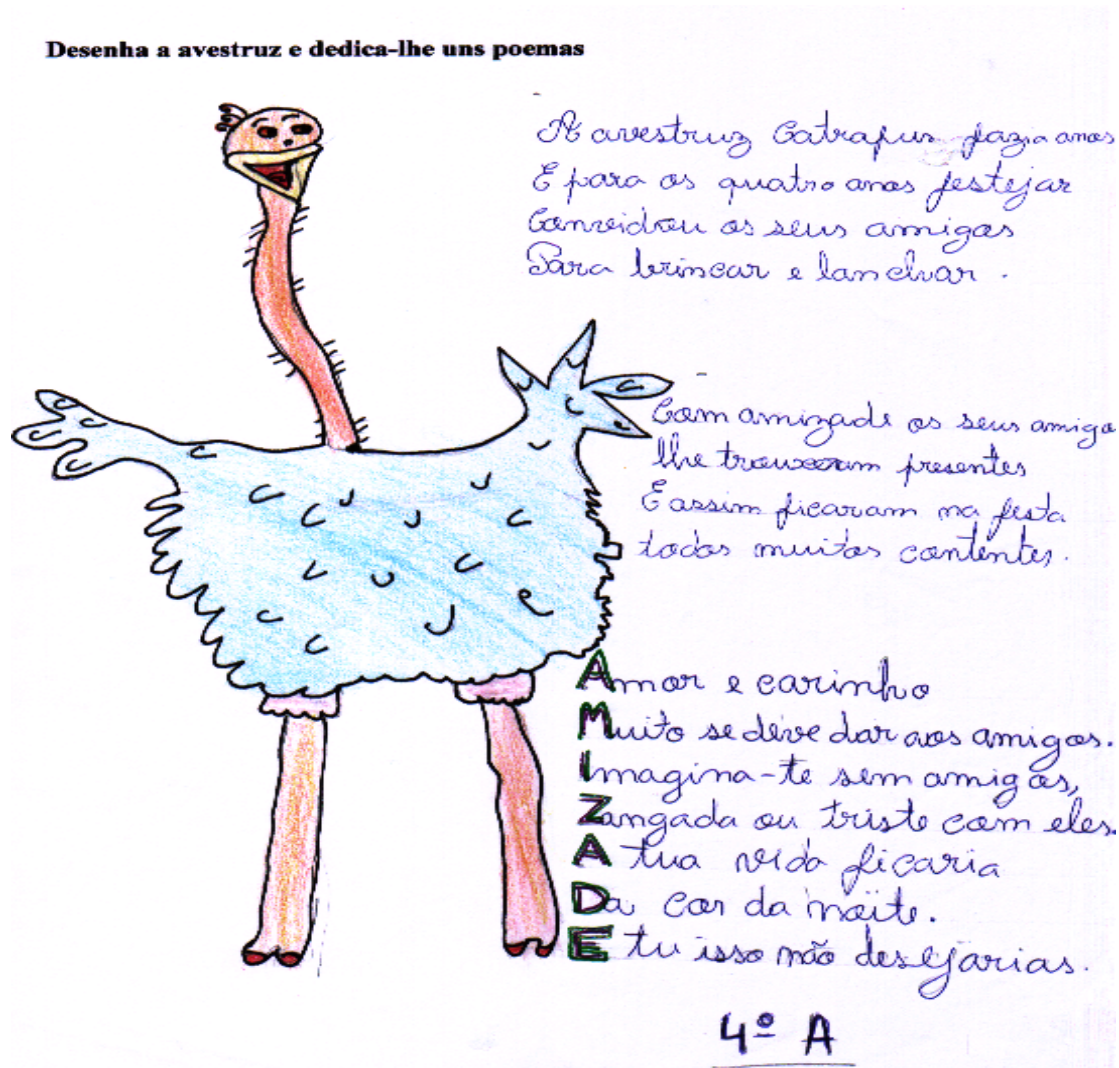 Desenha a avestruz e dedica-lhe uns poemas
A avestruz Catrapus fazia anos
E para os quatro anos festejar
Convidou os seus amigos
Para brincar e lanchar.
Com amizade os seus amigo
lhe trouxeram presentes
E assim ficaram na festa
todos muitos contentes.
Amor e carinho
Muito se deve dar aos amigos.
Imagina-te sem amigos,
Zangada ou triste com eles.
A tua vida ficaria
Da cor da noite.
E tu isso não desejarias.
4º A